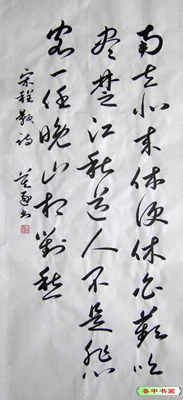 南去北来休便休白蘋吹
尽楚江秋道人不是悲
客一任晚山相對愁
宋程颢诗
书